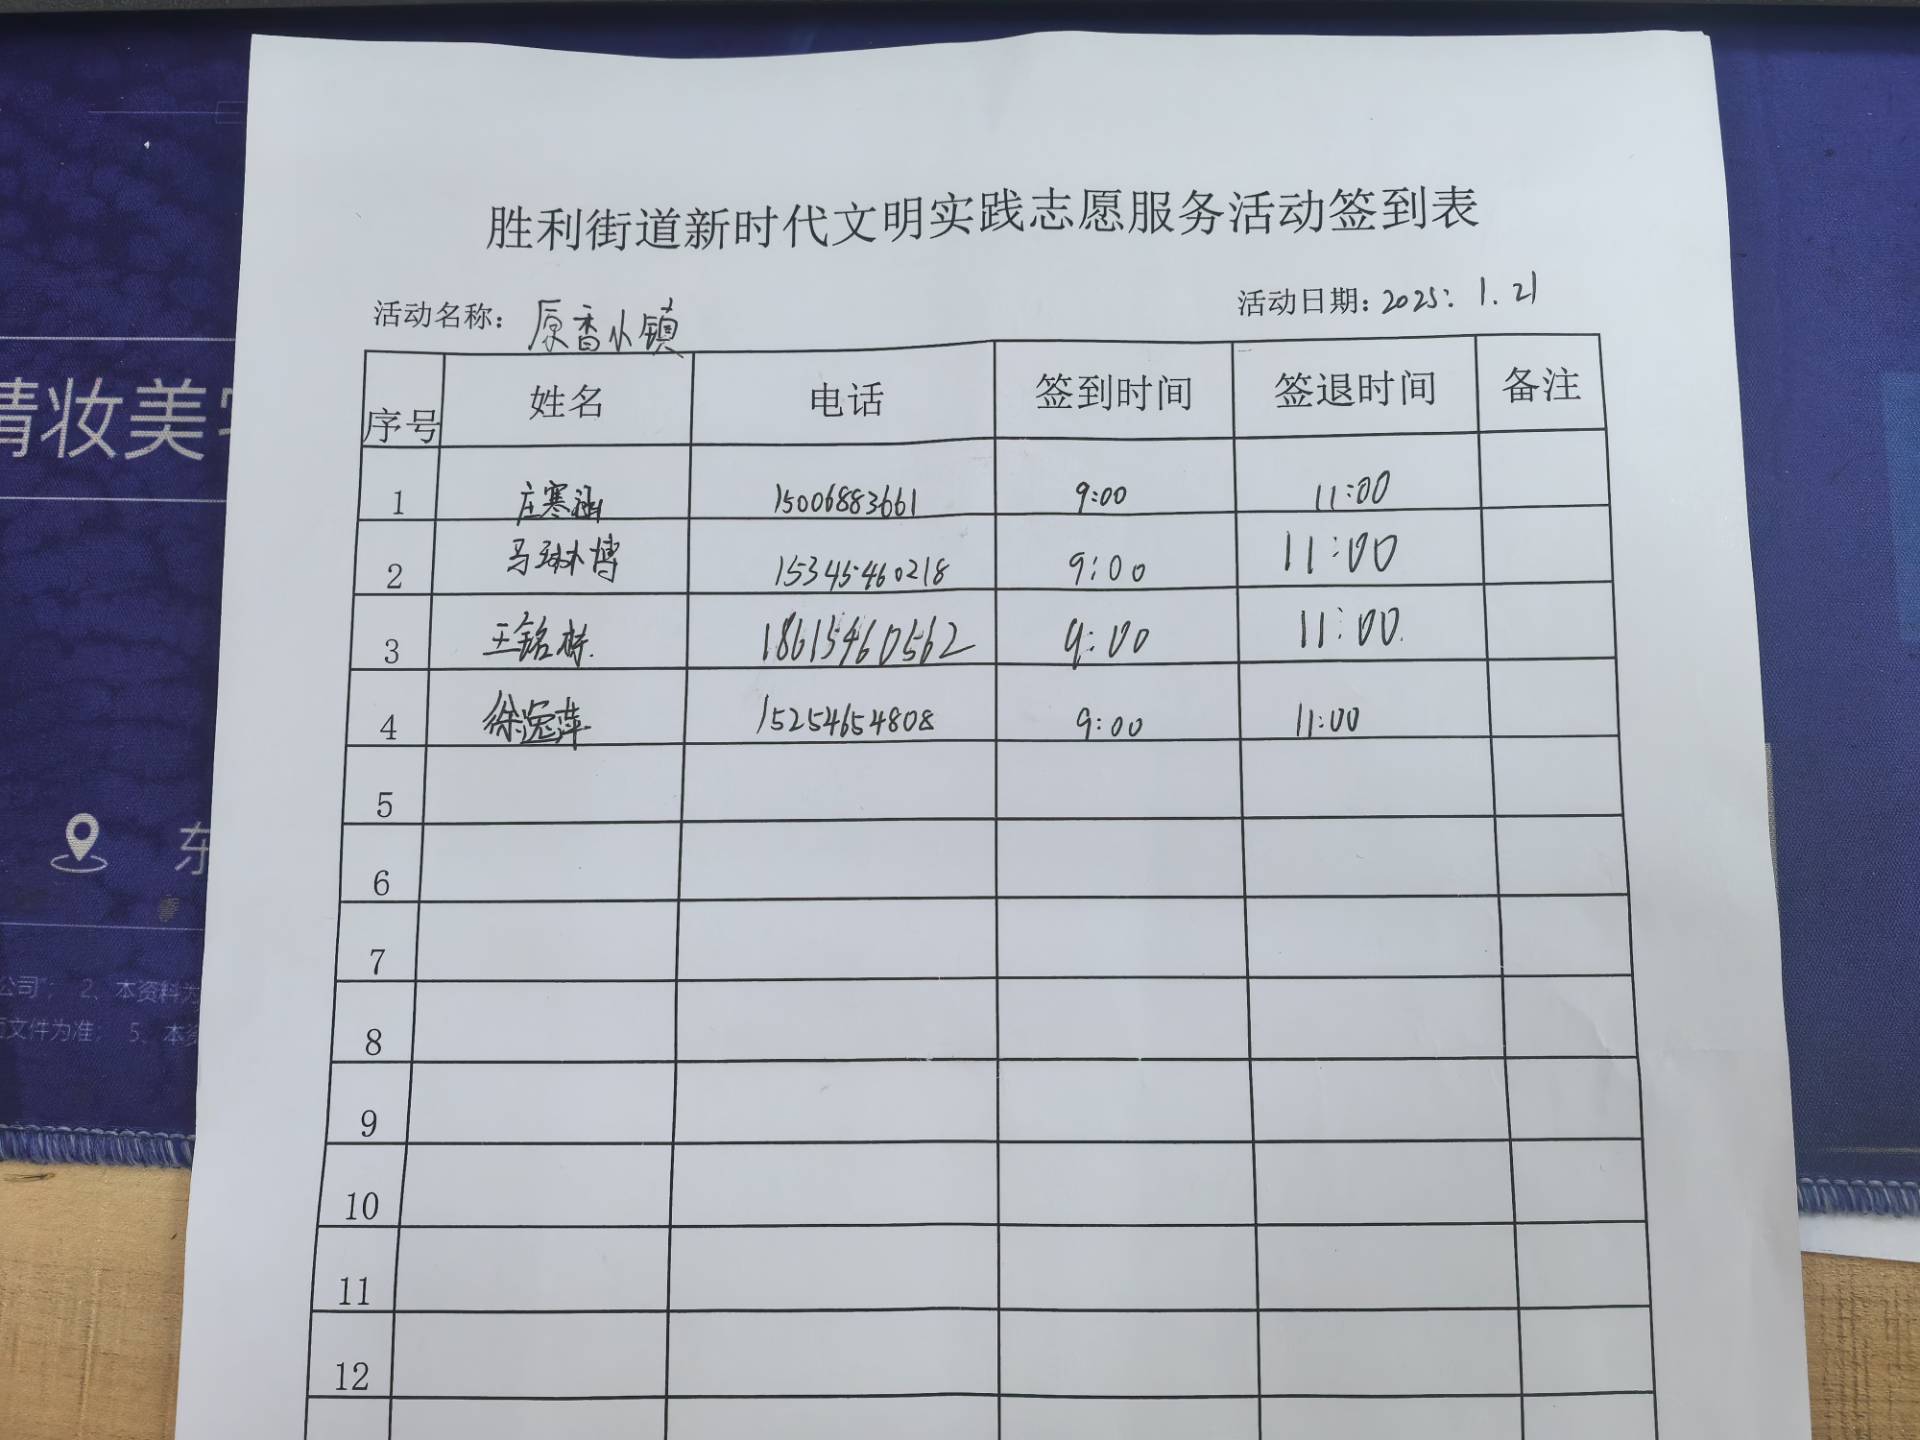 胜利街道新时代文明实践志愿服务活动签到表
活动名称：原香小镇 活动日期：2025.1.21
序号 姓名 电话 签到时间 签退时间 备注
1 庄寒涵 15006883661 9:00 11:00
2 马琳博 15345460218 9:00 11:00
3 王铭栋 18615460562 9:00 11:00
4 15254654808 9:00 11:00
5
6
7
8
9
10
11
12
精妆美
东
公司”； 2、本资料为
面文件为准； 5、本资